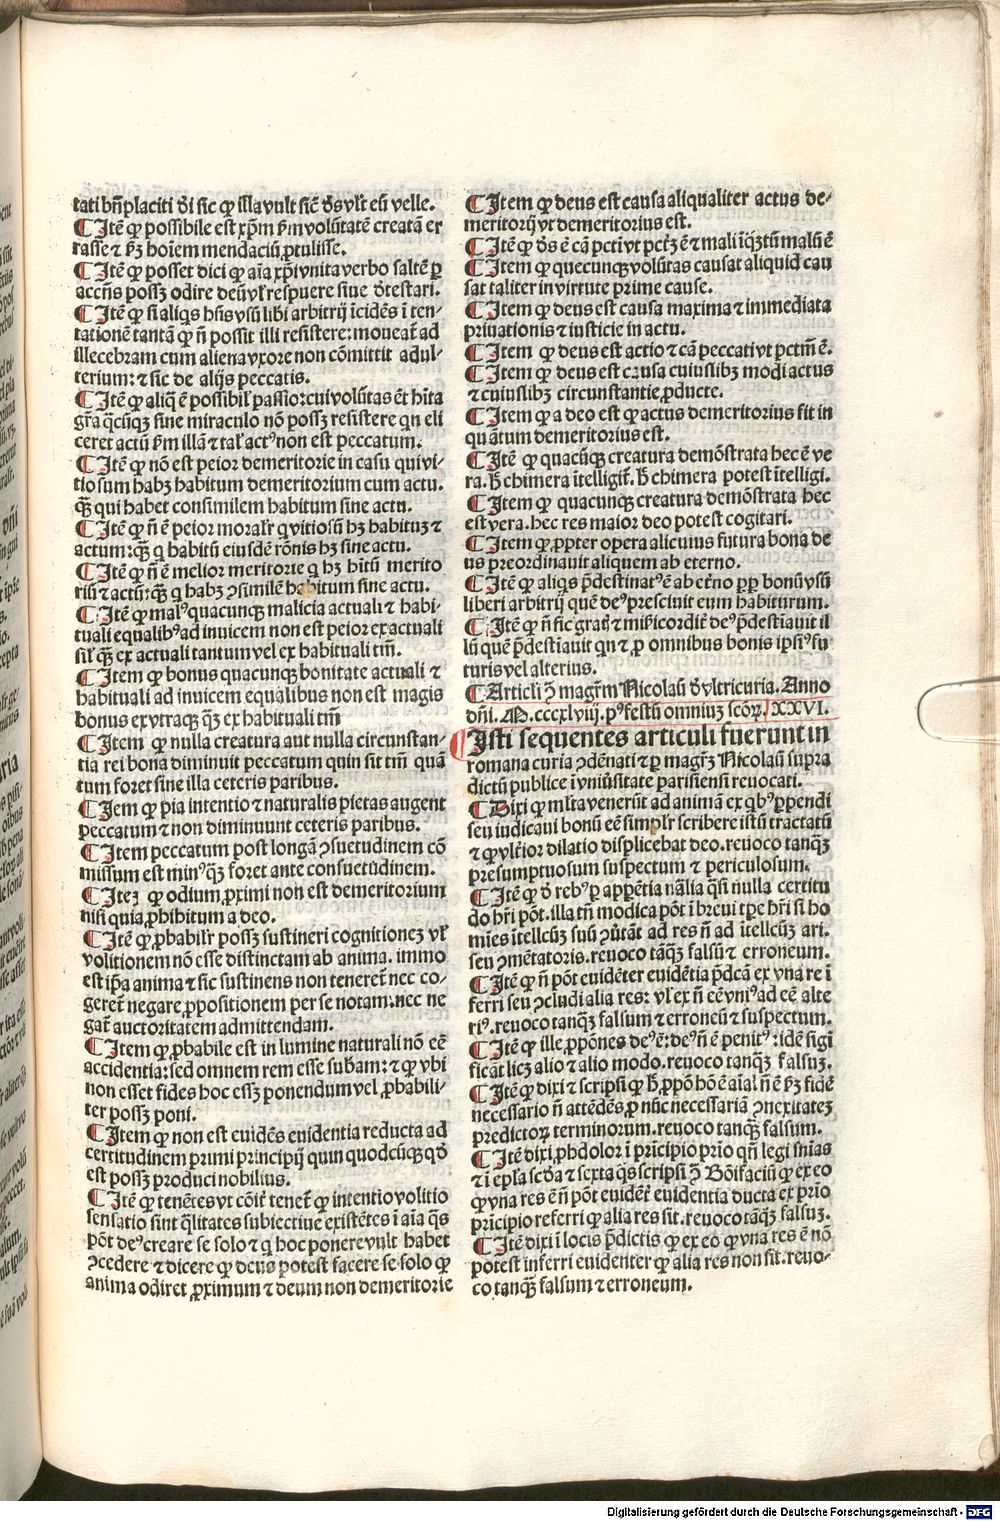 tati bñplaciti d̄i sic ꝙ illa vult sic̄ d̄s vlt̄ eū velle.
¶ Jtē ꝙ possibile est xp̄m ꝑm̄ volūtatē creatā er
rasse ⁊ ꝑꝫ hoīem mendaciū ꝓtulisse.
¶ Jtē ꝙ posset dici ꝙ aīa xp̄i vnita verbo saltē ꝑ
accn̄s possꝫ odire deū vl̄ respuere siue d̄testari.
¶ Jtē ꝙ si aliqs hn̄s vsū libi arbitrij īcidēs ī ten-
tationē tantā ꝙ n̄ possit illi resistere: moueat̄ ad
illecebram cum aliena vxore non cōmittit adul-
terium: ⁊ sic de alijs peccatis.
¶ Jtē ꝙ aliq̄ ē possibil̓ passio: cui volūtas ēt hn̄ta
gr̄a qc̄ūqꝫ sine miraculo nō possꝫ resistere qn eli
ceret actū ꝑm illā ⁊ tal̓ actꝰ non est peccatum.
¶ Jtē ꝙ nō est peior demeritorie in casu qui vi-
tiosum habꝫ habitum demeritorium cum actu.
qꝫ̄ qui habet consimilem habitum sine actu.
¶ Jtē ꝙ n̄ ē peior moral̓r q vitiosū hꝫ habitūꝫ ⁊
actum: qꝫ̄ q habitū eiusdē rōnis hꝫ sine actu.
¶ Jtē ꝙ n̄ ē melior meritorie q hꝫ hītū merito
riū ⁊ actū: qꝫ̄ q habꝫ ꝯsimilē habitum sine actu.
¶ Jtē ꝙ malꝰ quacunqꝫ malicia actuali ⁊ habi-
tuali equalibꝰ ad inuicem non est peior ex actuali
sil̓ qꝫ̄ ex actuali tantum vel ex habituali tm̄.
¶ Jtem ꝙ bonus quacunqꝫ bonitate actuali ⁊
habituali ad inuicem equalibus non est magis
bonus ex vtracqꝫ qꝫ̄ ex habituali tm̄
¶ Jtem ꝙ nulla creatura aut nulla circunstan-
tia rei bona diminuit peccatum quin sit tm̄ quā
tum foret sine illa ceteris paribus.
¶ Jem ꝙ pia intentio ⁊ naturalis pietas augent
peccatum ⁊ non diminuunt ceteris paribus.
¶ Jtem peccatum post longā ꝯsuetudinem cō
missum est minꝰ qꝫ̄ foret ante consuetudinem.
¶ Jteꝫ ꝙ odium ꝓximi non est demeritorium
nisi quia ꝓhibitum a deo.
¶ Jtē ꝙ ꝓbabil̓r possꝫ sustineri cognitioneꝫ vl̄
volitionem nō esse distinctam ab anima. immo
est ip̄a anima ⁊ sic sustinens non teneret̄ nec co-
geret̄ negare ꝓpositionem per se notam: nec ne
gar̄ auctoritatem admittendam.
¶ Jtem ꝙ ꝓbabile est in lumine naturali nō eē
accidentia: sed omnem rem esse subam̄: ⁊ ꝙ vbi
non esset fides hoc essꝫ ponendum vel ꝓbabili-
ter possꝫ poni.
¶ Jtem ꝙ non est euidēs euidentia reducta ad
certitudinem primi principij quin quodcūqꝫ qd̄
est possꝫ produci nobilius.
¶ Jtē ꝙ tenētes vt cōit̄ tenet̄ ꝙ intentio volitio
sensatio sint q̄litates subiectiue existētes ī aīa qs
pōt deꝰ creare se solo ⁊ q hoc ponere vult habet
ꝯcedere ⁊ dicere ꝙ deus potest facere se solo ꝙ
anima odiret ꝓximum ⁊ deum non demeritorie
¶ Jtem ꝙ deus est causa aliqualiter actus de-
meritorij vt demeritorius est.
¶ Jtē ꝙ d̄s ē cā pctī vt pctꝫ̄ ē ⁊ mali īqꝫ̄tū malū ē
¶ Jtem ꝙ quecunqꝫ volūtas causat aliquid cau
sat taliter in virtute prime cause.
¶ Jtem ꝙ deus est causa maxima ⁊ immediata
priuationis ⁊ iusticie in actu.
¶ Jtem ꝙ deus est actio ⁊ cā peccati vt pctm̄ ē.
¶ Jtem ꝙ deus est causa cuiuslibꝫ modi actus
⁊ cuiuslibꝫ circunstantie ꝓducte.
¶ Jtem ꝙ a deo est ꝙ actus demeritorius fit in
quātum demeritorius est.
¶ Jtē ꝙ quacūqꝫ creatura demōstrata hec ē ve
ra. h̄ chimera ītelligit̄. h̄ chimera potest ītelligi.
¶ Jtem ꝙ quacunqꝫ creatura demōstrata hec
est vera. hec res maior deo potest cogitari.
¶ Jtem ꝙ ꝓpter opera alicuius futura bona de
us preordinauit aliquem ab eterno.
¶ Jtē ꝙ aliqs p̄destinatꝰ ē ab et̄no ꝓp̄ bonū vsū
liberi arbitrij quē deꝰ presciuit eum habiturum.
¶ Jtē ꝙ n̄ sic gratꝭ ⁊ mīẜicordit̄ deꝰ p̄destīauit il
lū quē p̄destiauit qn ⁊ ꝓ omnibus bonis ipsiꝰ fu
turis vel alterius.
¶ Articli ꝯ̄ magr̄m Nicolaū d̄ vltricuria. Anno
dn̄i. M.cccxlviij. pꝰ festū omniuꝫ scōꝝ. XXVI.
¶ Jsti sequentes articuli fuerunt in
romana curia ꝯdēnati ⁊ ꝑ magr̄ꝫ Nicolaū supra
dictū publice ī vniūsitate parisiensi reuocati.
¶ Dixi ꝙ ml̄ta venerūt ad animā ex qbꝰ ꝑpendi
seu iudicaui bonū eē simpl̓r scribere istū tractatū
⁊ ꝙ vlt̄ior dilatio displicebat deo. reuoco tanqꝫ̄
presumptuosum suspectum ⁊ periculosum.
¶ Jtē ꝙ d̄ rebꝰ ꝑ appētia nāl̓ia qsi nulla certitu
do hr̄i pōt. illa tn̄ modica pōt ī breui tꝑe hr̄i si ho
mīes ītellcūꝫ suū ꝯūtāt ad res n̄ ad ītellcūꝫ ari.
seu ꝯmētatoris. reuoco tāqꝫ falsū ⁊ erroneum.
¶ Jtē ꝙ n̄ pōt euidēter euidētia p̄dcā ex vna re ī
ferri seu ꝯcludi alia res: vl̄ ex n̄ eē vniꝰ ad eē alte
riꝰ. reuoco tanqꝫ falsum ⁊ erroneū ⁊ suspectum.
¶ Jtē ꝙ ille ꝓpōnes deꝰ ē: deꝰ n̄ ē penitꝰ: idē sigi
ficāt licꝫ alio ⁊ alio modo. reuoco tanqꝫ falsuꝫ.
¶ Jtē ꝙ dixi ⁊ scripsi ꝙ h̄ ꝓpō hō ē aīal n̄ ē ꝑꝫ fidē
necessario n̄ attēdēs ꝓ nūc necessariā ꝯnexitateꝫ
predictoꝝ terminorum. reuoco tanqꝫ̄ falsum.
¶ Jtē dixi ꝓhdolor ī prīcipio prīo qn̄ legi snīas
⁊ ī epl̄a scd̄a ⁊ sexta qs scripsi ꝯ̄ Bōifaciū ꝙ ex eo
ꝙ vna res ē n̄ pōt euidēt̄ euidentia ducta ex prīo
prīcipio referri ꝙ alia res sit. reuoco tāqꝫ falsuꝫ.
¶ Jtē dixi ī locis p̄dictis ꝙ ex eo ꝙ vna res ē nō
potest inferri euidenter ꝙ alia res non sit. reuo-
co tanqꝫ̄ falsum ⁊ erroneum.
Digitalisierung gefördert durch die Deutsche Forschungsgemeinschaft - DFG